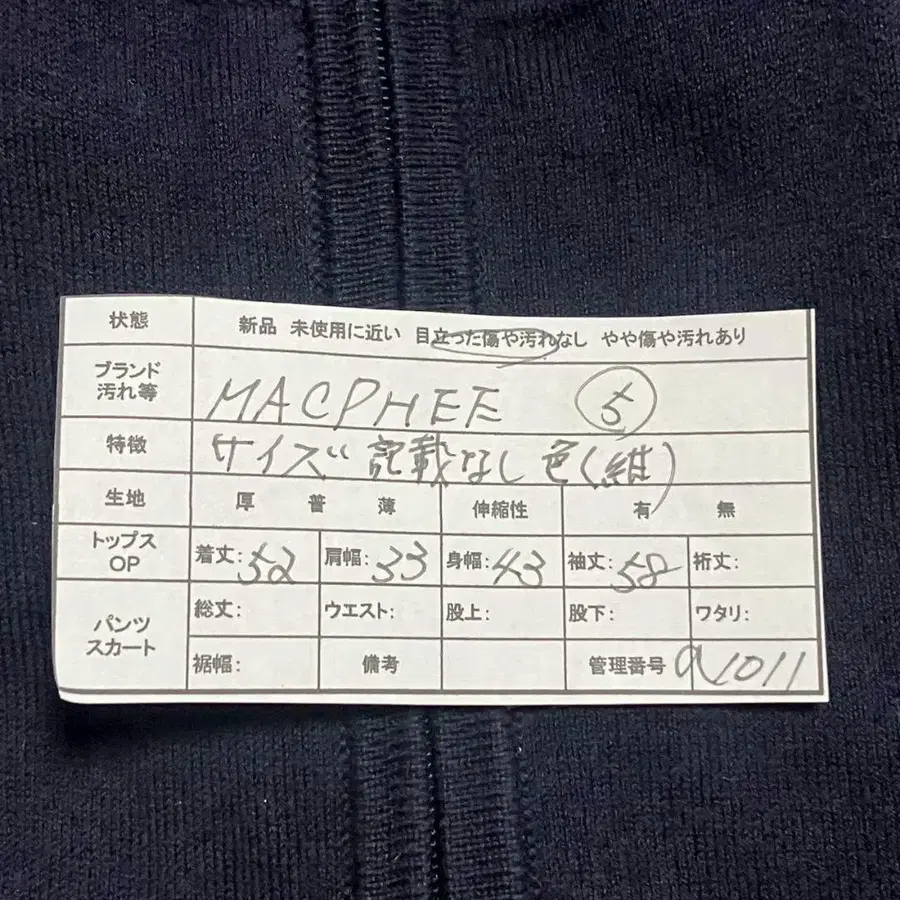 状態 新品 未使用に近い 目立った傷や汚れなし やや傷や汚れあり
ブランド 汚れ等 MACPHEE 5
特徴 サイズ記載なし 色(紺)
生地 厚 普 薄 伸縮性 有 無
トップス OP 着丈:52 肩幅:33 身幅:43 袖丈:58 裄丈:
パンツ スカート 総丈: ウエスト: 股上: 股下: ワタリ:
裾幅: 備考 管理番号 a1011